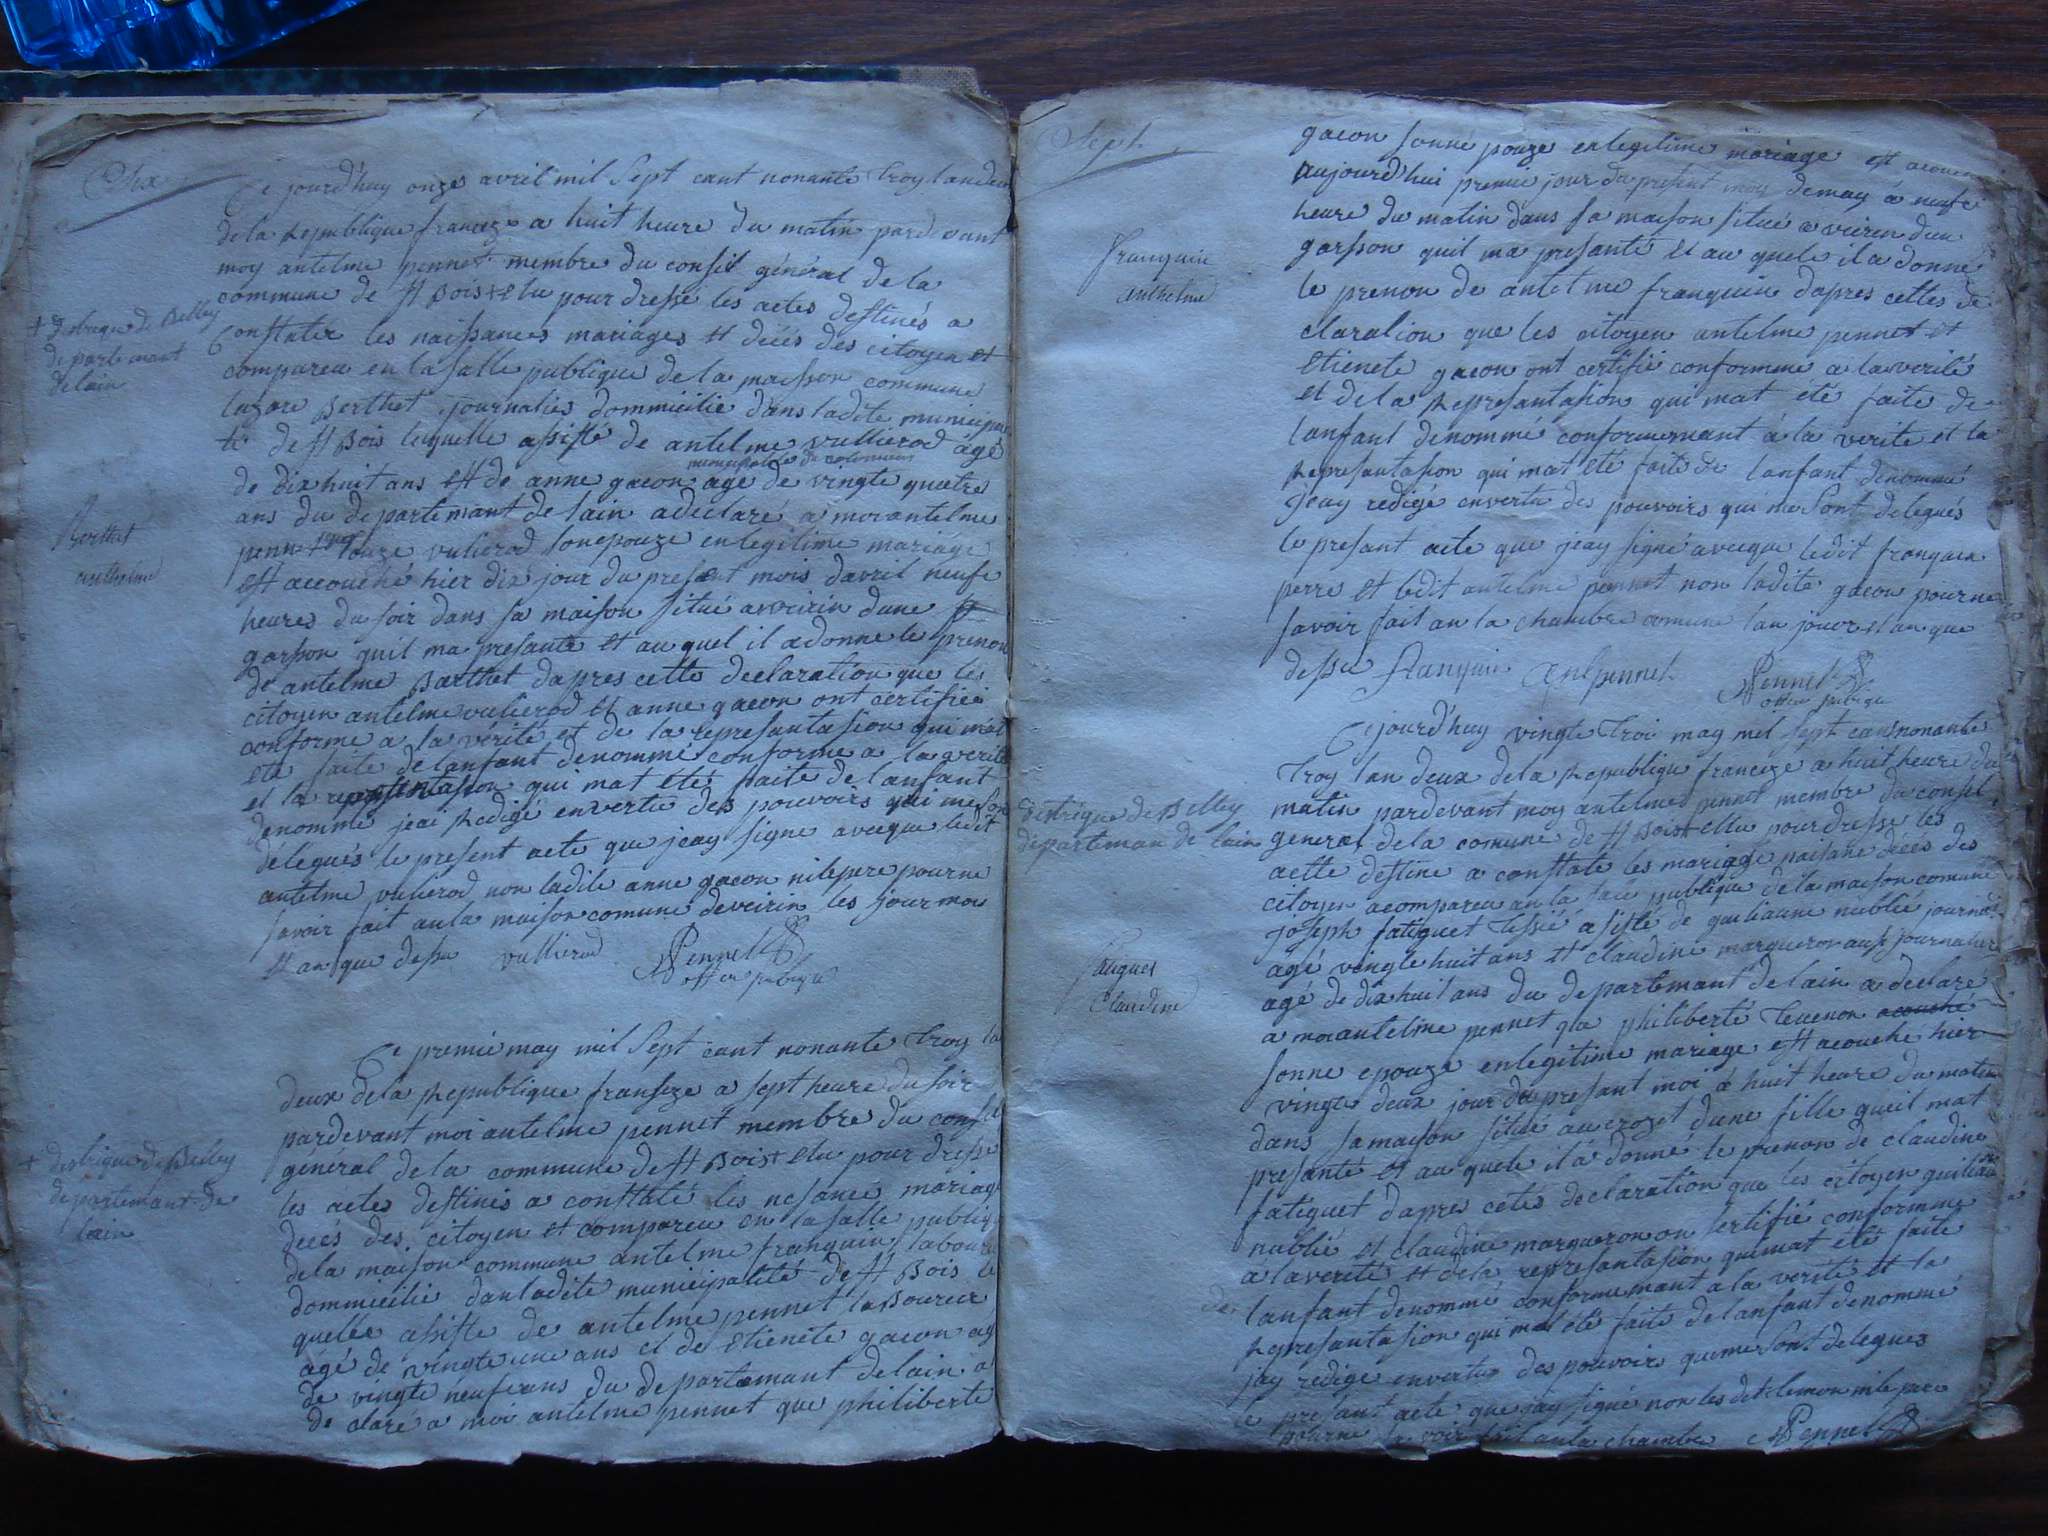 Six
Ce jourd'huy onze avril mil sept cant nonante troy landeux
de la republique franceze a huit heure du matin pardevant
moy antelme pennet membre du conseil général de la
commune de st Bois + elu pour dressé les actes destinés a
+ destrique de Belley
departemant
de lain
Constater les naissances mariages et décés des citoyen et
compareu en la salle publique de la maisson commune
lazare Berthet journaliés dommicilié dans ladite municipali
té de st Bois lequelle assisté de antelme vullierod agé
municipalité de colomieux
de dix huit ans et de anne gacon agé de vingte quatre
ans du departemant de lain a déclaré a moi antelme
Berthet
anthelme
pennet que louize vulierod sone pouze en legitime mariage
est accouché hier dix jour du present mois davril neufe
heures du soir dans sa maison situé a veirin dune
garsson quil ma presanté et au quel il a donne le prenon
de antelme Barthet dapres cette declaration que les
citoyen antelme vulierod et anne gacon ont certifiéé
conforme a la vérité et de la represantasion qui mat
été faite de lanfant denommé conforme a la verité
et la represantasion qui mat été faite de lanfant
denommé jeai redigé en vertu des pouvoirs qui me son
délegués le present acte que jeay signe avecque ledit
antelme vulierod non ladite anne gacon ni le pere pour ne
savoir fait au la maison comune de veirin les jour moi
et an que dessu vullierod Pennet
officie publique
Ce premie may mil sept cant nonante troy la
deux de la republique franseze a sept heure du soir
pardevant moi antelme pennet membre du conseil
+ destrique de Belley
departemant de
lain
général de la commune de st Bois + elu pour dresse
les actes destinés a constaté les nesance mariage
décés des citoyen et compareu en la salle publique
de la maison commune antelme franquin laboure
dommicilié dan ladite municipalité de st Bois le
quelle assiste de antelme pennet laboureur
agé de vingte une ans et de etienete gacon ag
de vingte neufe ans du departemant de lain a
de claré a moi antelme pennet que philiberte
Sept
gacon sonné pouze en legitime mariage est acouch
aujourd'hui premie jour du present moy de may a neufe
heure du matin dans sa maison situé a veirin dun
franquin
anthelme
garsson quil ma presanté et au quele il a donné
le prenon de antelme franquin dapres cettes de
claration que les citoyen antelme pennet et
etienete gacon ont certifié conformme a la verité
et de la represantasion qui mat été faite de
lanfant denommé conformemant à la verite et la
represantasion qui mat eté faite de lanfant denommé
jeay redigé en vertu des pouvoirs qui me sont delegués
le presant acte que jeay signé avecque ledit franquin
perre et ledit antelme pennet non ladite gacon pour ne
savoir fait an la chambre comune lan jouor et an que
dessu franquin Ant pennet Pennet
officie publique
Cejourd'huy vingte troi may mil sept cant nonante
troy lan deux de la republique franceze a huit heure du
matin pardevant moy antelme pennet membre du conseil
destrique de Belley
departeman de lain
general de la comune de st Bois + ellu pour dresse les
actte destine a constate les mariage naisane décés des
citoyen a compareu an la sale publique de la maison comune
joseph fatiguet tissié a sisté de guiliaume nublié journa
fauguet
Claudine
agé vingte huit ans et claudine margueron ausi journalier
agé de dix huit ans du departemant de lain a declaré
a moi antelme pennet que philiberte tevenon acouché
sonne epouze en legitime mariage est acouche hier
vingte deux jour du presant moi a huit heure du matin
dans sa maison situé au crozet dune fille quil mat
presanté et au quele il a donné le prenon de claudine
fatiguet dapres cetes declaration que les citoyen guiliaume
nublié et claudine margueron on sertifié conformme
a la verité et de la represantasion qui mat été faite
de
lanfant denommé conformemant a la verité et la
represantasion qui mat été faite de lanfant denomme
jay redige en vertu des pouvoirs qui me sont delegues
le presant acte que jay signé non les dit temon ni le pere
pour ne savoir fait an la chambre Pennet